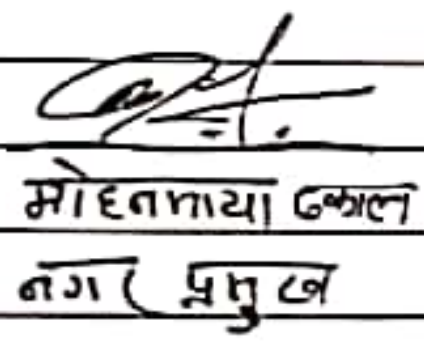 मोहनमाया ढकाल
नगर प्रमुख